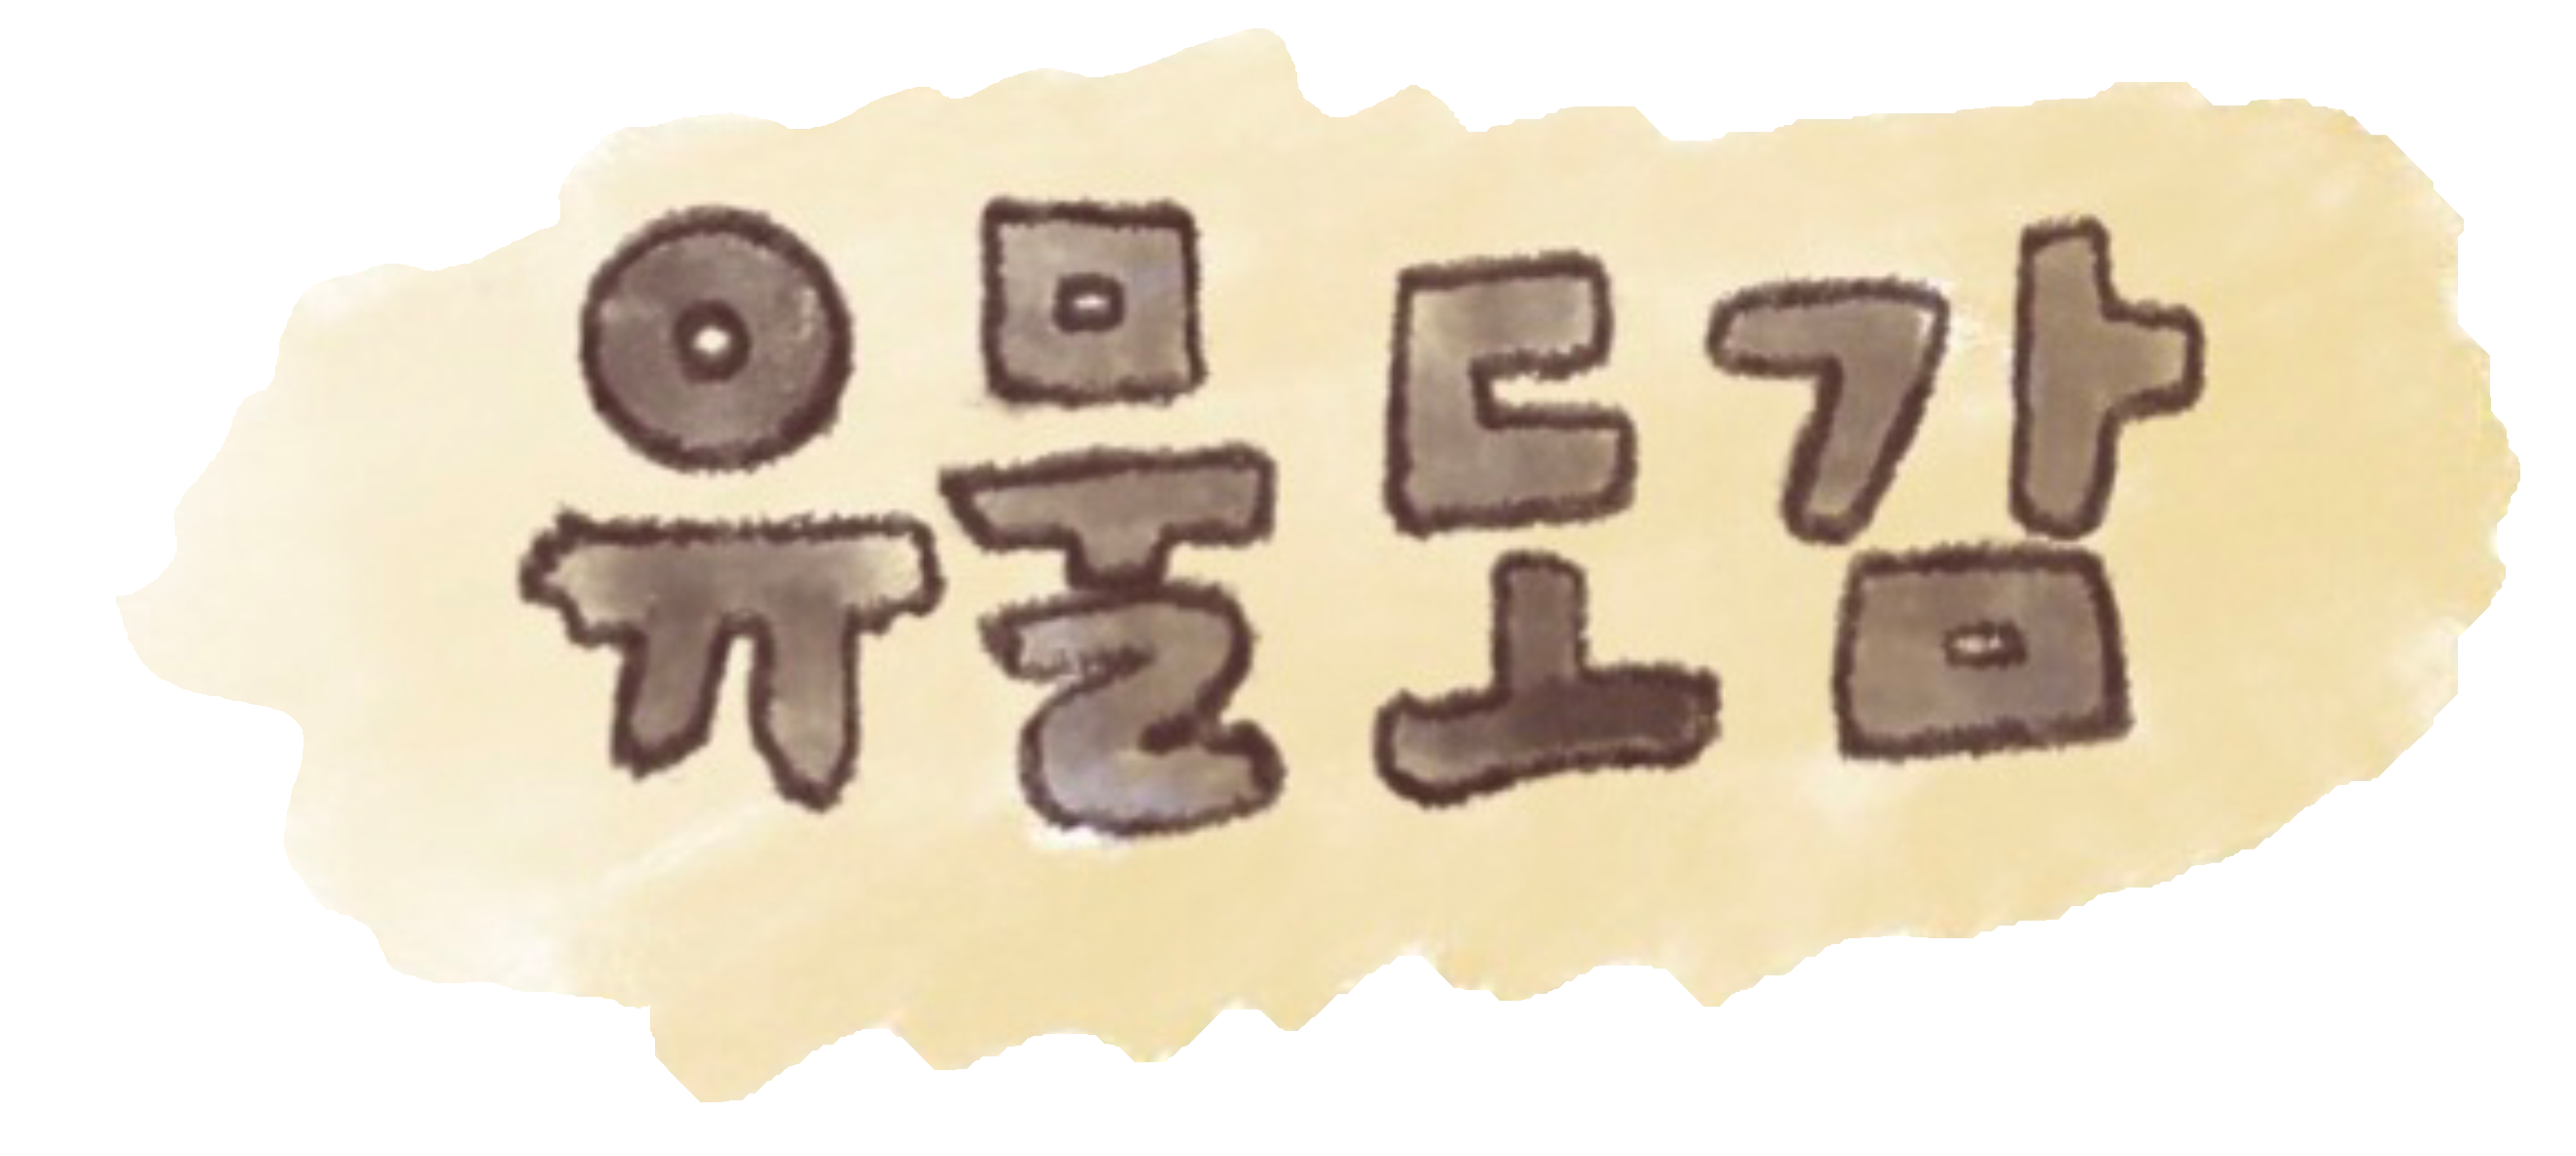 유물도감